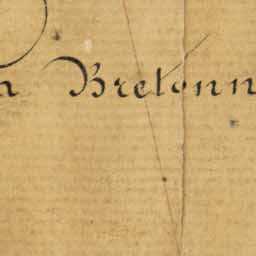 n Bretonn